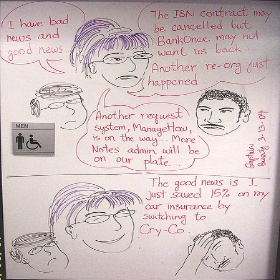 I have bad
news and
good news
The IBN contract may
be cancelled but
BankOnce may not
want us back.
Another re-org just
happened
Another request
system, ManageNow,
is on the way... More
Notes admin will be
on our plate.
MEN
The good news is I
just saved 15% on my
car insurance by
switching to
Cry-Co.